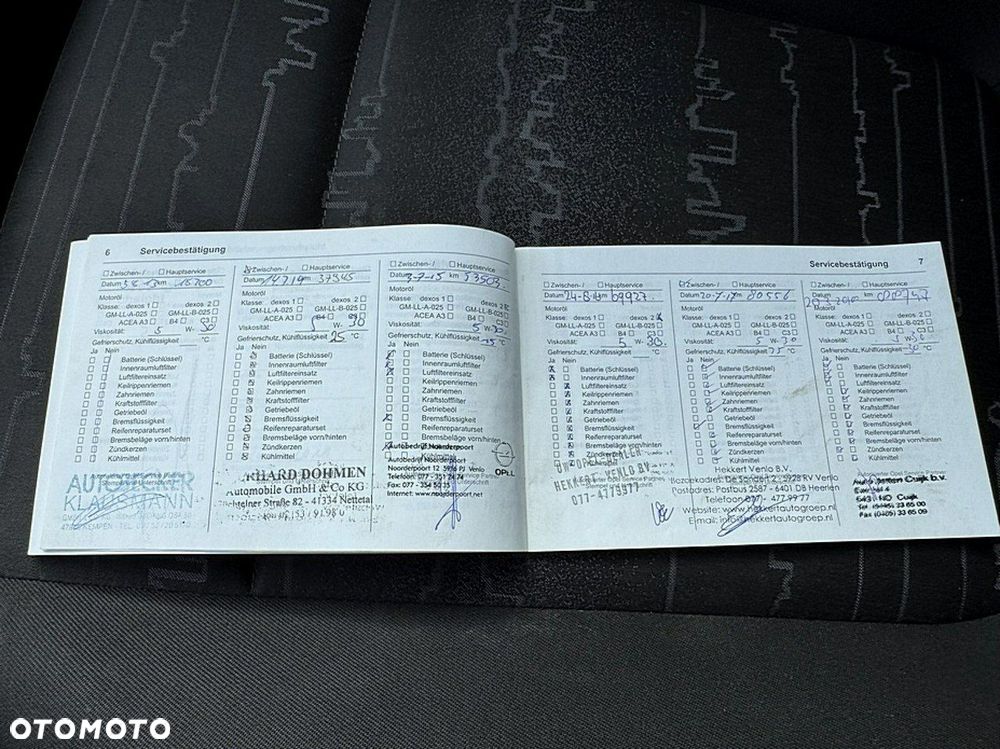 6 Servicebestätigung
Zwischen- / Hauptservice
Datum km 15700
Motoröl
Klasse: dexos 1 dexos 2
GM-LL-A-025 GM-LL-B-025
ACEA A3 B4 C3
Viskosität: 5 W- 30
Gefrierschutz, Kühlflüssigkeit °C
Ja Nein
Batterie (Schlüssel)
Innenraumluftfilter
Luftfiltereinsatz
Keilrippenriemen
Zahnriemen
Kraftstofffilter
Getriebeöl
Bremsflüssigkeit
Reifenreparaturset
Bremsbeläge vorn/hinten
Zündkerzen
Kühlmittel
Zwischen- / Hauptservice
Datum 37345
Motoröl
Klasse: dexos 1 dexos 2
GM-LL-A-025 GM-LL-B-025
ACEA A3 B4 C3
Viskosität: 5 W- 30
Gefrierschutz, Kühlflüssigkeit 25 °C
Ja Nein
Batterie (Schlüssel)
Innenraumluftfilter
Luftfiltereinsatz
Keilrippenriemen
Zahnriemen
Kraftstofffilter
Getriebeöl
Bremsflüssigkeit
Reifenreparaturset
Bremsbeläge vorn/hinten
Zündkerzen
Kühlmittel
DOHMEN
Automobile GmbH & Co KG
Straße 82 - 41334 Nettetal
Zwischen- / Hauptservice
Datum 3-7-15 km 53503
Motoröl
Klasse: dexos 1 dexos 2
GM-LL-A-025 GM-LL-B-025
ACEA A3 B4 C3
Viskosität: 5 W- 30
Gefrierschutz, Kühlflüssigkeit °C
Ja Nein
Batterie (Schlüssel)
Innenraumluftfilter
Luftfiltereinsatz
Keilrippenriemen
Zahnriemen
Kraftstofffilter
Getriebeöl
Bremsflüssigkeit
Reifenreparaturset
Bremsbeläge vorn/hinten
Autobedrijf Noorderpoort
Noorderpoort 12 5916 PJ Venlo
Telefoon: 077 - 351 24 74
Internet: www.noorderpoort.net
OPEL
Servicebestätigung 7
Zwischen- / Hauptservice
Datum km 69927
Motoröl
Klasse: dexos 1 dexos 2
GM-LL-A-025 GM-LL-B-025
ACEA A3 B4 C3
Viskosität: 5 W- 30
Gefrierschutz, Kühlflüssigkeit °C
Ja Nein
Batterie (Schlüssel)
Innenraumluftfilter
Luftfiltereinsatz
Keilrippenriemen
Zahnriemen
Kraftstofffilter
Getriebeöl
Bremsflüssigkeit
Reifenreparaturset
Bremsbeläge vorn/hinten
Zündkerzen
Kühlmittel
HEKKERT VENLO BV
077-4779977
Zwischen- / Hauptservice
Datum km 80556
Motoröl
Klasse: dexos 1 dexos 2
GM-LL-A-025 GM-LL-B-025
ACEA A3 B4 C3
Viskosität: 5 W- 30
Gefrierschutz, Kühlflüssigkeit °C
Ja Nein
Batterie (Schlüssel)
Innenraumluftfilter
Luftfiltereinsatz
Keilrippenriemen
Zahnriemen
Kraftstofffilter
Getriebeöl
Bremsflüssigkeit
Reifenreparaturset
Bremsbeläge vorn/hinten
Zündkerzen
Kühlmittel
Hekkert Venlo B.V.
Bezoekadres: De Sondert 2 - 5928 RV Venlo
Postadres: Postbus 2587 - 6401 DB Heerlen
Telefoon: 077 - 477 99 77
Website: www.hekkertautogroep.nl
E-mail: info@hekkertautogroep.nl
Zwischen- / Hauptservice
Datum km
Motoröl
Klasse: dexos 1 dexos 2
GM-LL-A-025 GM-LL-B-025
ACEA A3 B4 C3
Viskosität: 5 W- 30
Gefrierschutz, Kühlflüssigkeit -30 °C
Ja Nein
Batterie (Schlüssel)
Innenraumluftfilter
Luftfiltereinsatz
Keilrippenriemen
Zahnriemen
Kraftstofffilter
Getriebeöl
Bremsflüssigkeit
Reifenreparaturset
Bremsbeläge vorn/hinten
Zündkerzen
Kühlmittel
Cuijk b.v.
Cuijk
Tel 33 65 00
Fax (0485) 33 65 09
OTOMOTO